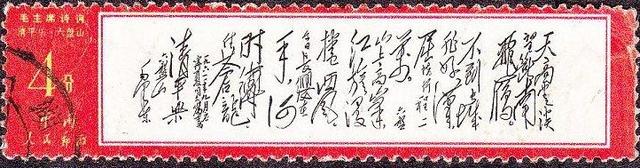 毛主席诗词
清平乐·六盘山
4分
中国
人民邮政
天高云淡
望断南
飞雁
不到长城
非好汉
屈指行程二
万 六盘
山上高峰
红旗漫
卷西风
今日长缨在
手 何
时缚
住苍龙
清平乐
六盘山
毛泽东